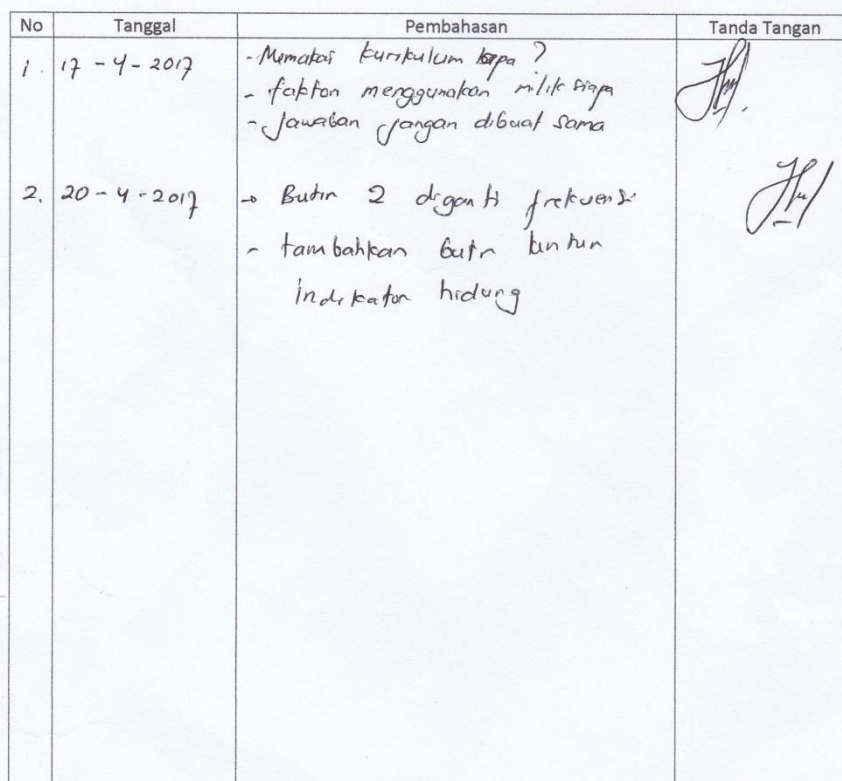 No Tanggal Pembahasan Tanda Tangan
1. 17 - 4 - 2017 - Memakai kurikulum apa ?
- faktor menggunakan milik siapa
- Jawaban jangan dibuat sama
2. 20 - 4 - 2017 → Butir 2 diganti frekuensi
- tambahkan butir
indikator hidung